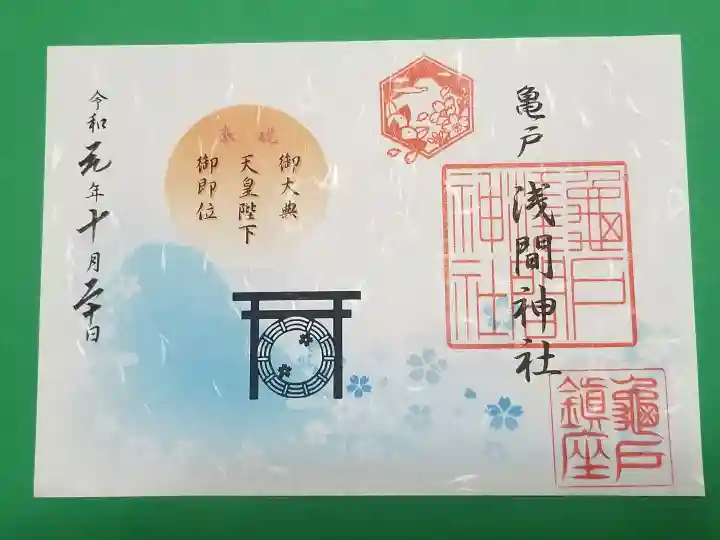 亀戸 浅間神社
龜戸
淺間
神社
龜戸
鎮座
奉祝
御大典
天皇陛下
御即位
令和元年十月二十日